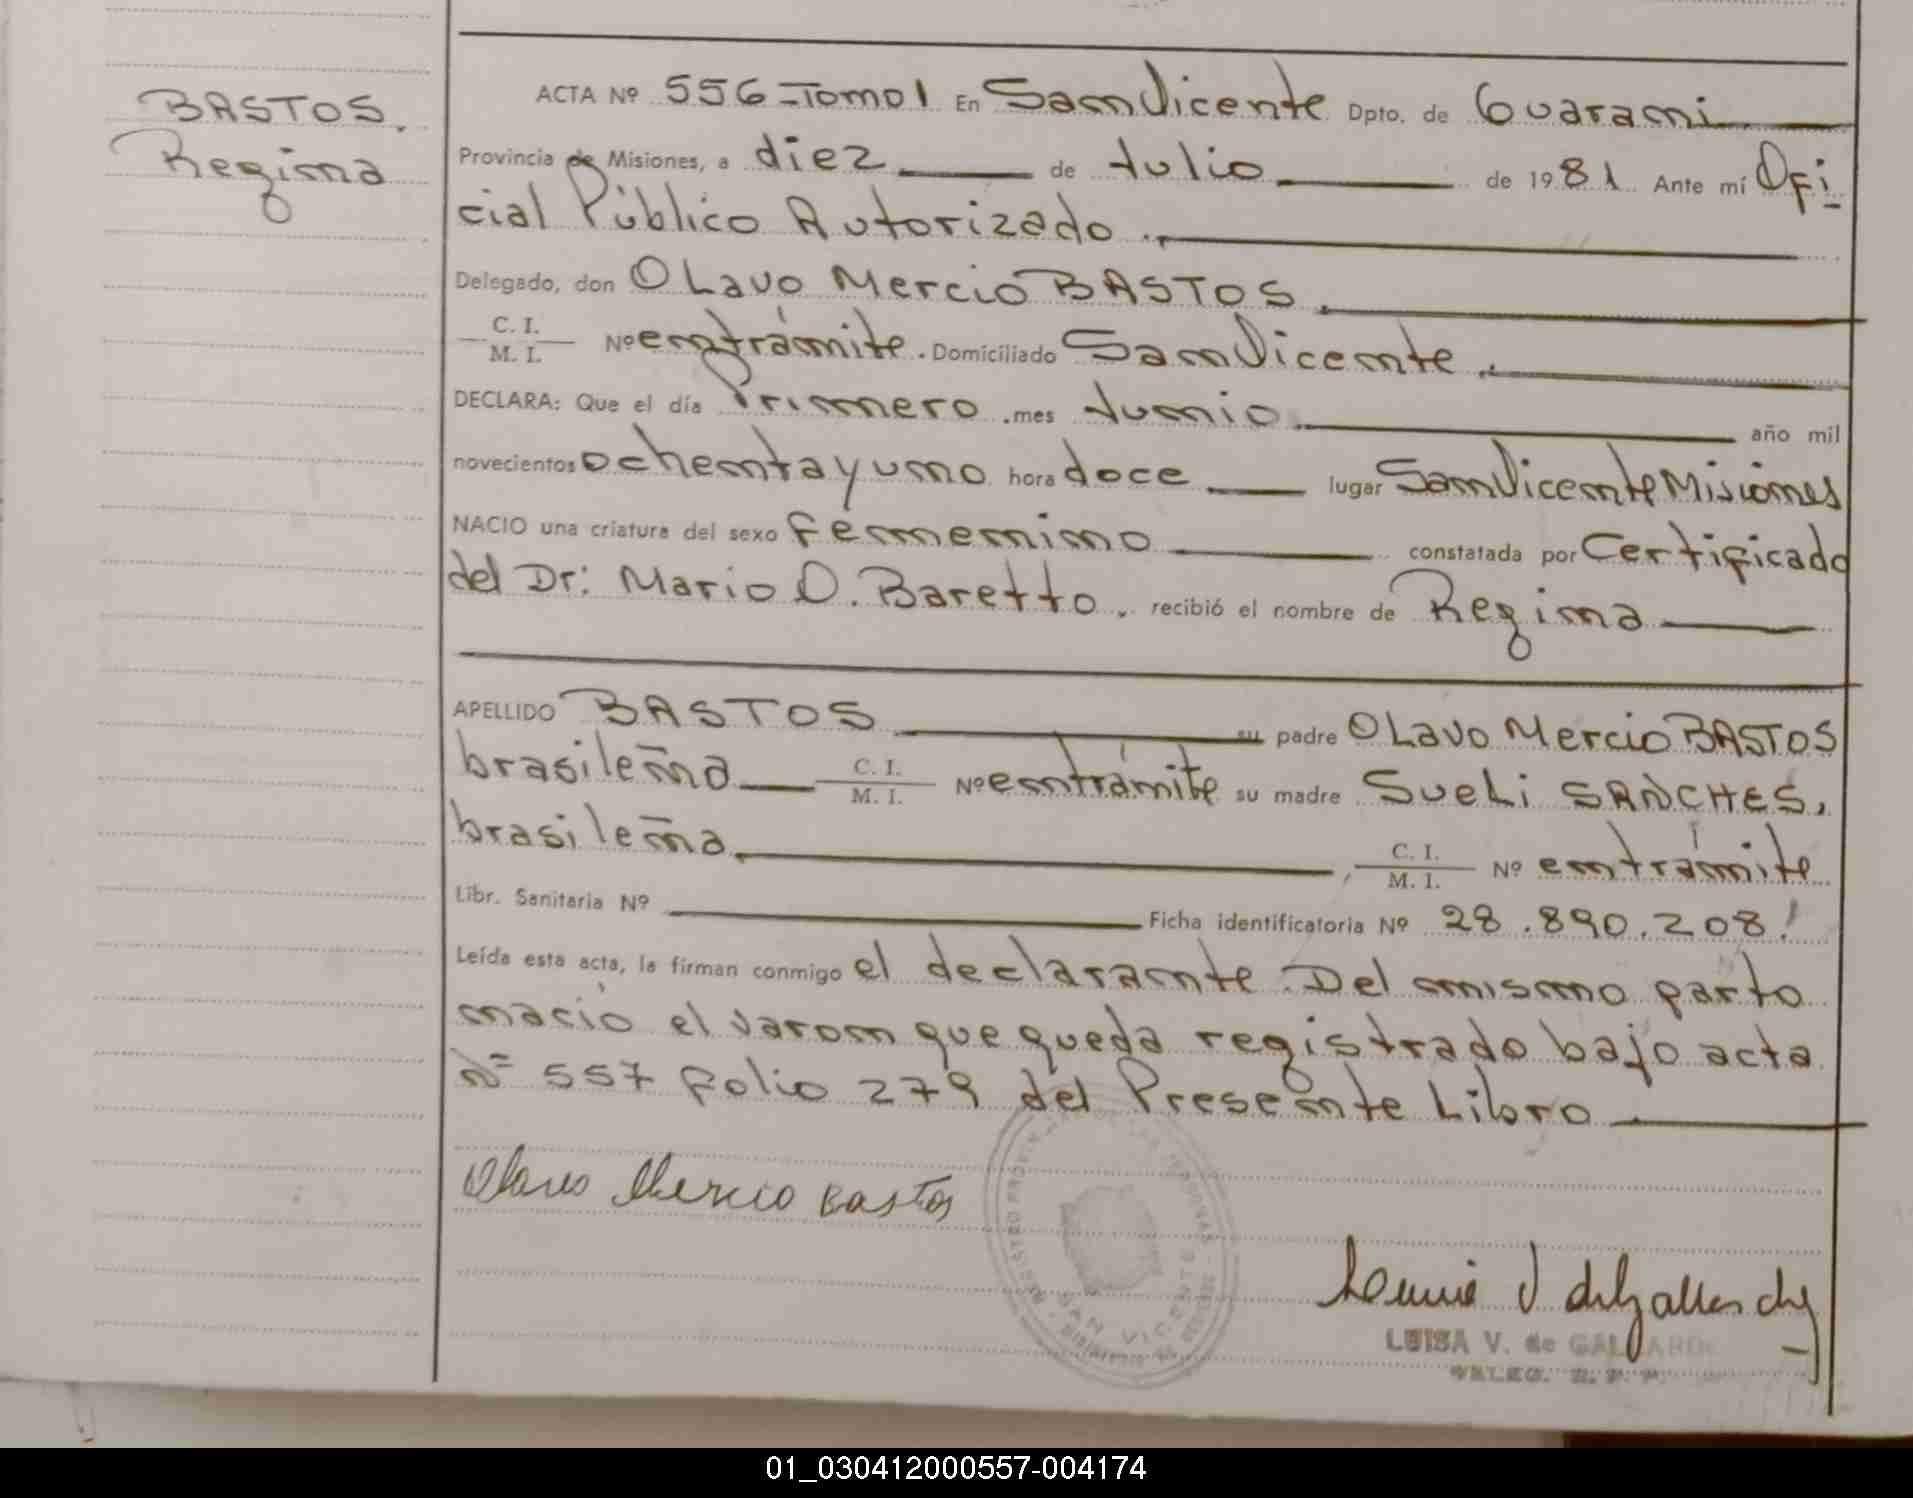 BASTOS.
Regina
ACTA Nº 556=Tomo I En San Vicente Dpto. de Guarani
Provincia de Misiones, a diez de Julio de 1981 Ante mí Ofi
cial Público Autorizado.
Delegado, don Olavo Mercio BASTOS.
C. I.
M. I. Nº en trámite. Domiciliado San Vicente.
DECLARA: Que el día Primero .mes Junio. año mil
novecientos ochenta y uno hora doce lugar San Vicente Misiones
NACIO una criatura del sexo femenino constatada por Certificado
del Dr: Mario O. Baretto. recibió el nombre de Regina
APELLIDO BASTOS su padre Olavo Mercio BASTOS
brasileña C. I.
M. I. Nº en trámite su madre Sueli SANCHES,
brasileña. C. I.
M. I. Nº en trámite
Libr. Sanitaria Nº Ficha identificatoria Nº 28.890.208!
Leída esta acta, la firman conmigo el declarante. Del mismo parto
nació el varon que queda registrado bajo acta
nº 557 folio 279 del Presente Libro
Olavo Mercio Bastos
SAN VICENTE
LUISA V. de GALLARDO
DELEG. R. P. P.
01_030412000557-004174